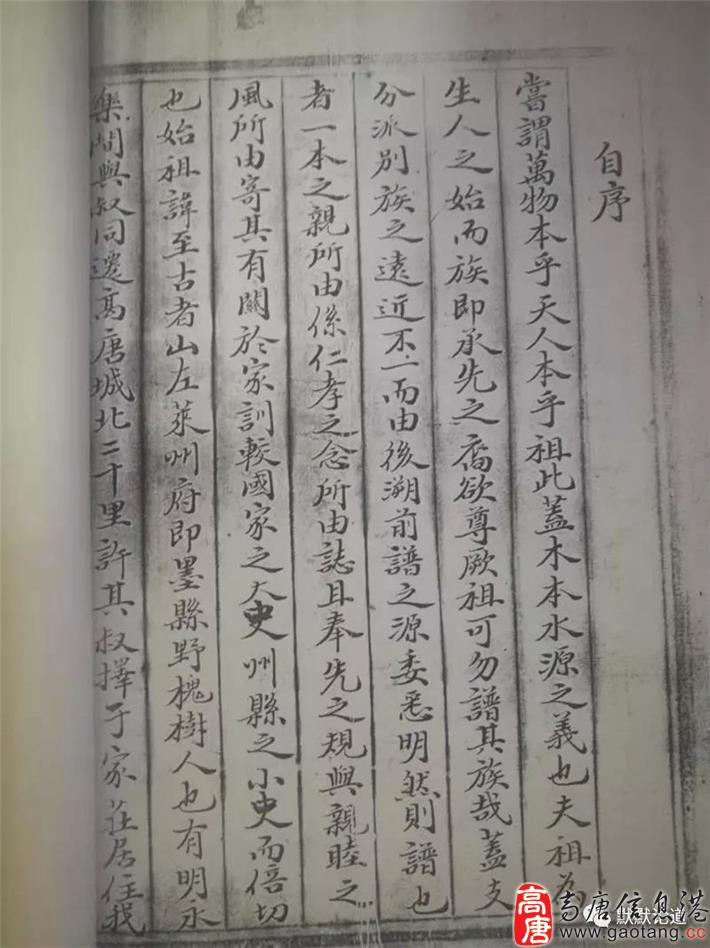 自序
嘗謂萬物本乎天人本乎祖此蓋木本水源之義也夫祖為
生人之始而族即承先之裔欲尊厥祖可勿譜其族哉蓋支
分派別族之遠近不一而由後溯前譜之源委悉明然則譜也
者一本之親所由係仁孝之念所由誌且奉先之規與親睦之
風所由寄其有關於家訓較國家之大史州縣之小史而倍切
也始祖諱至古者山左萊州府即墨縣野槐樹人也有明永
樂間與叔同遷高唐城北二十里許其叔擇于家莊居住我
默默论道
高唐
高唐信息港
www.gaotang.cc